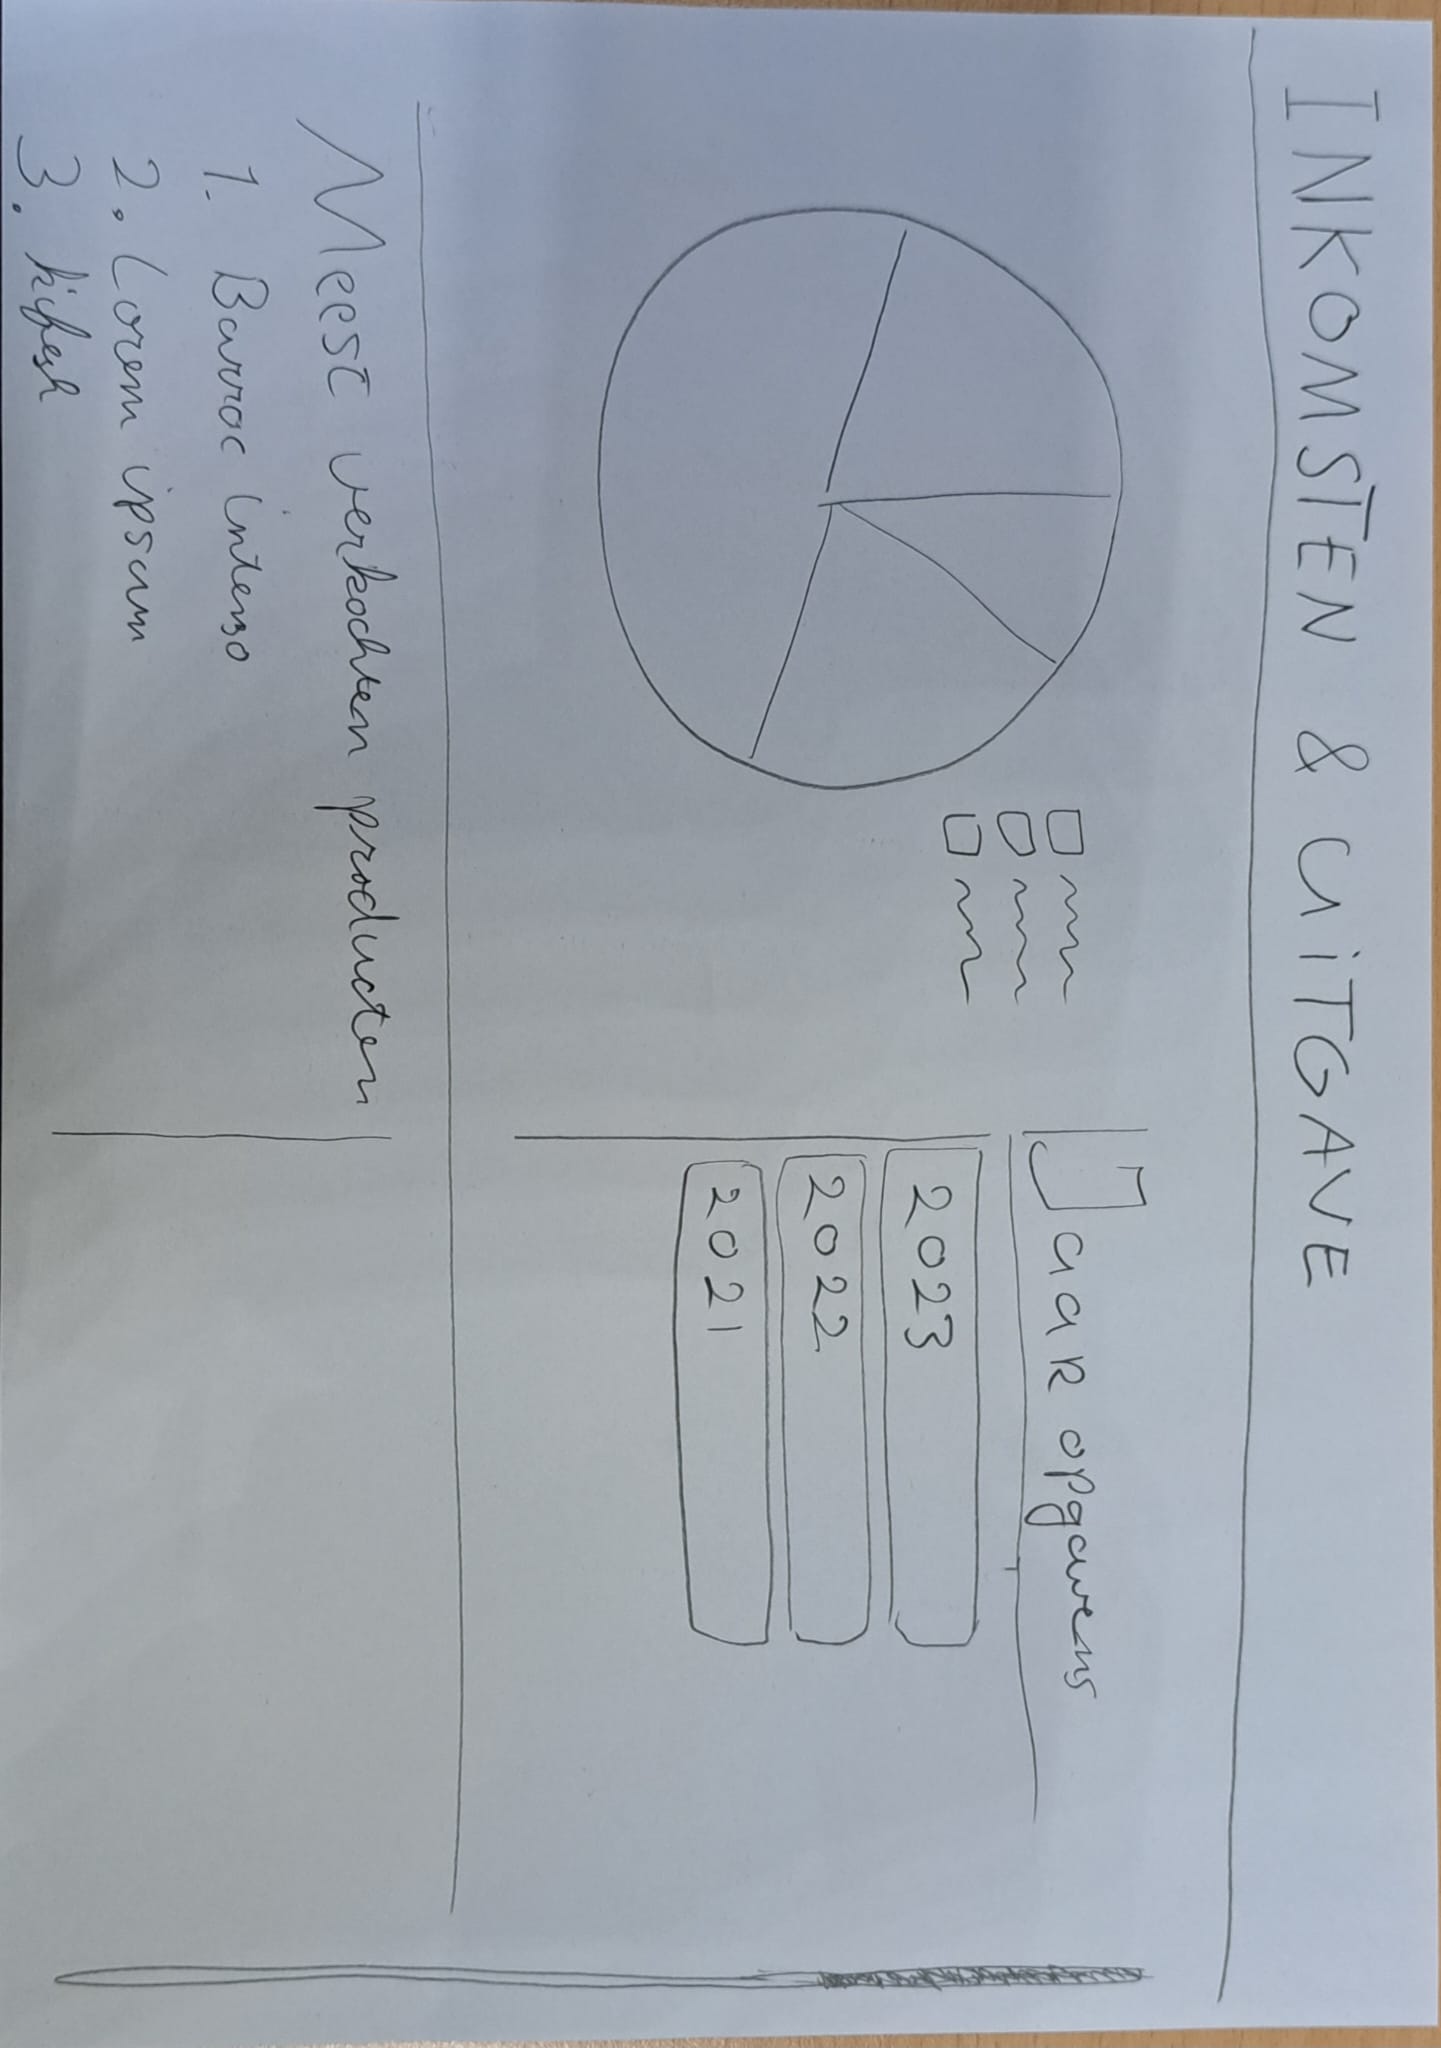 INKOMSTEN & UITGAVE
Jaar opgavens
2023
2022
2021
Meest verkochten producten
1. Barroc intenso
2. Lorem ipsum
3.